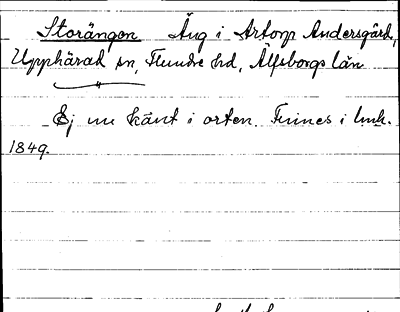 Storängen Äng i Artorp Andersgård,
Upphärad sn, Flundre hd, Älfsborgs län
Ej nu känt i orten. Finnes i lmk.
1849.